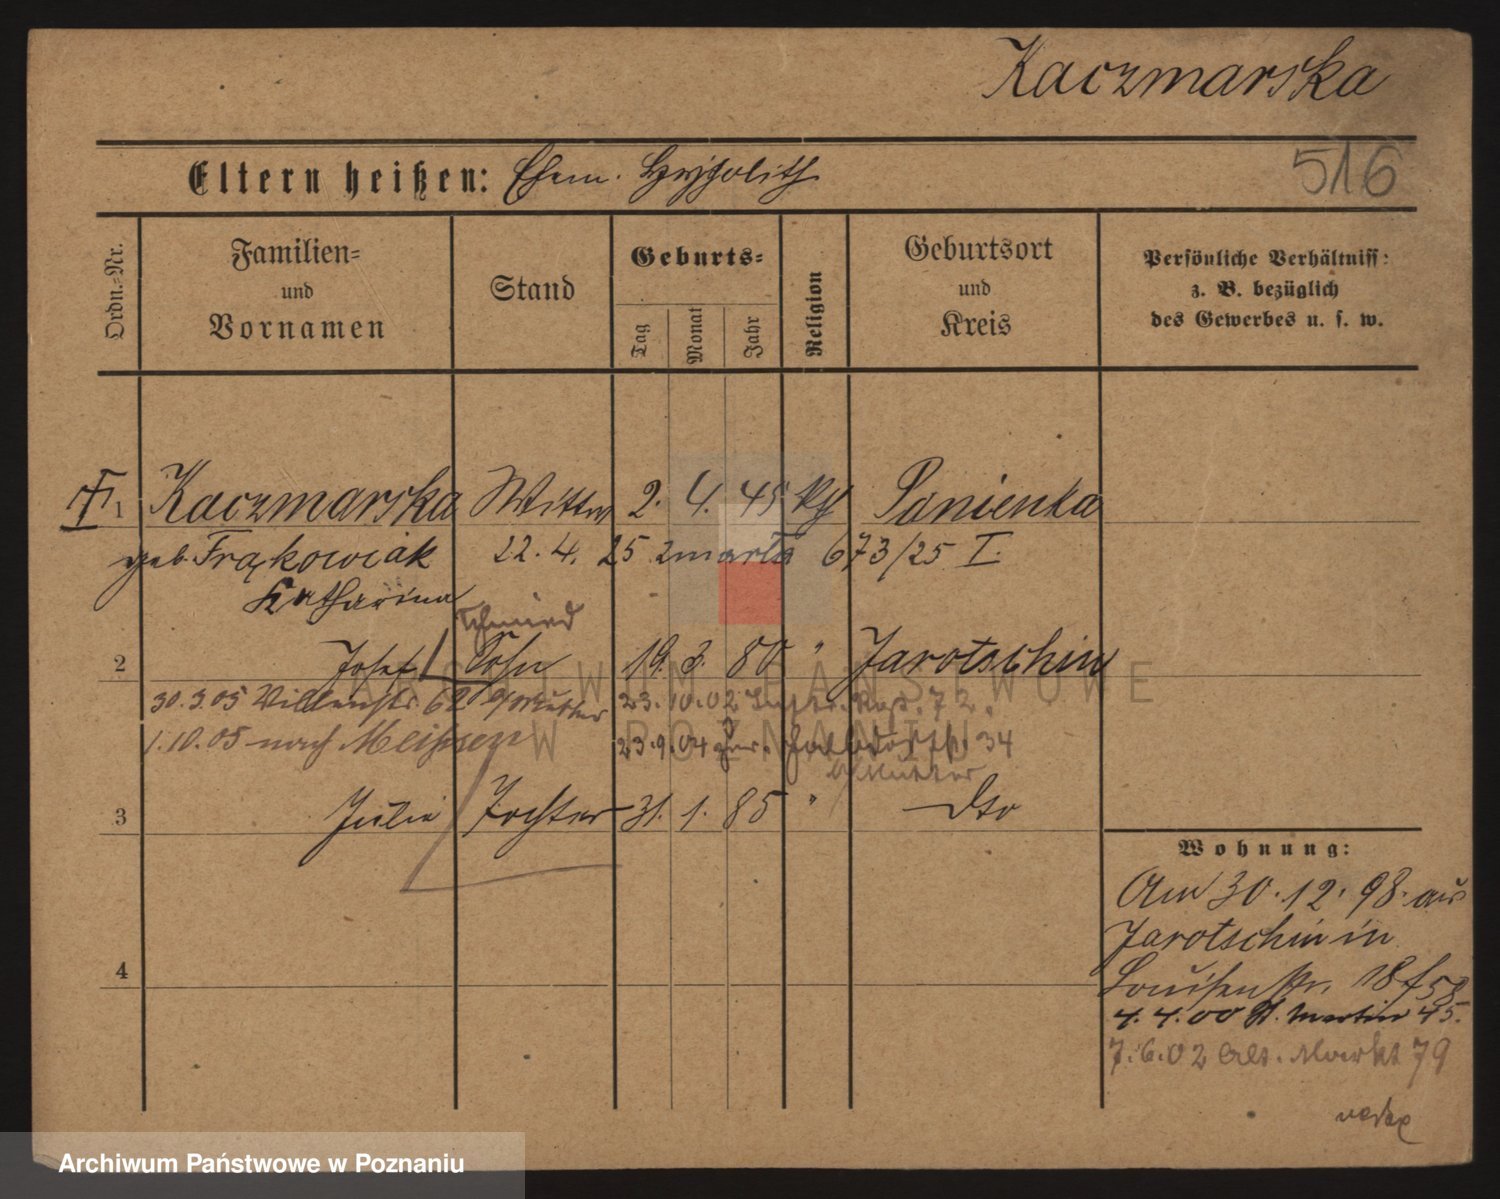 Kaczmarska
Eltern heißen: Ehem. Hypolith
516
Ordn.-Nr.
Familien-
und
Vornamen
Stand
Geburts-
Tag
Monat
Jahr
Religion
Geburtsort
und
Kreis
Persönliche Verhältniss:
z. B. bezüglich
des Gewerbes u. s. w.
1 Kaczmarska Wittw 2. 4. 45 Panienka
geb. Frąkowiak 22. 4. 25 zmarła 673/25 I.
Katharina
Schmied
2 Josef Sohn 19. 3. 80 " Jarotschin
30.3.05 62 b/Mutter 23.10.02 72.
1.10.05 nach Meissen 23.9.04 34
b/Mutter
3 Julie Tochter 31. 1. 85 " dto
Wohnung:
Am 30.12.98. aus
Jarotschin in
Louisenstr. 18
4
4.4.00 St. Martin 45.
7.6.02 Alt. Markt 79
ARCHIWUM PAŃSTWOWE
W POZNANIU
Archiwum Państwowe w Poznaniu